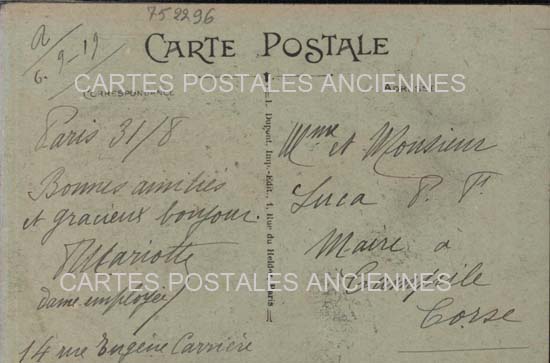 752296
a
6-9-19
CARTE POSTALE
CARTES POSTALES ANCIENNES
CORRESPONDANCE
ADRESSE
Paris 31/8
Bonnes amitiés
et gracieux bonjour.
Mariotte
dame employée
14 rue Eugène Carrière
L. Dupont, Imp.-Edit., 1, Rue du Helder, Paris
Mme et Monsieur
Luca P. Pt
Maire à
Corse
CARTES POSTALES ANCIENNES